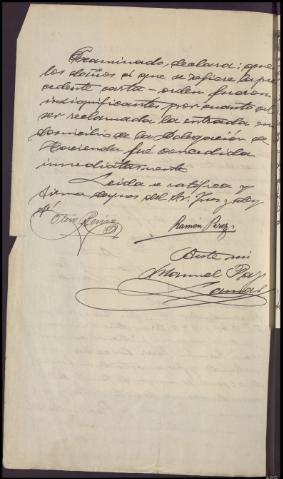 Examinado, declara: que
los daños á que se refiere la pre
cedente carta-orden fueron
insignificantes, por cuanto al
ser reclamada la entrada en
domicilio de la Delegación de
Hacienda fué concedida
inmediatamente
Leída se ratifica y
firma despues del Sr. Juez, doy
fé
Ramon Perez
Ante mi
Manuel